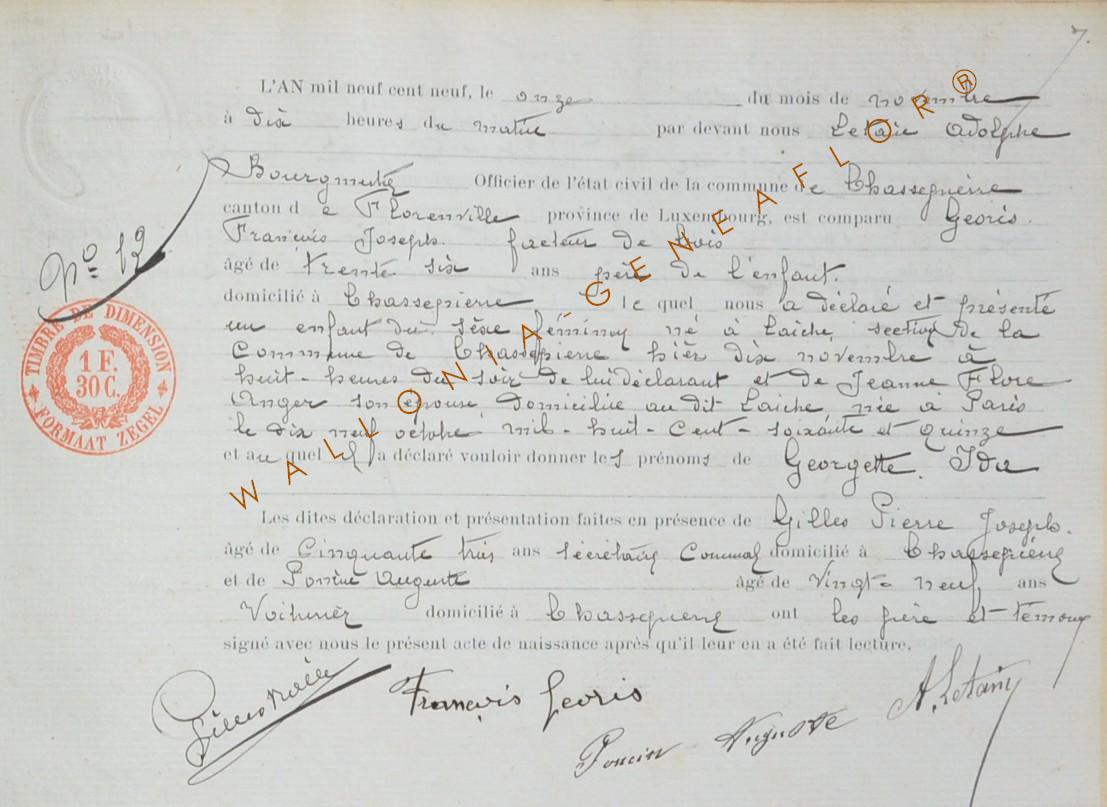 7.
L'AN mil neuf cent neuf, le onze du mois de novembre
à dix heures du matin par devant nous Letaie Adolphe
Bourgmestre Officier de l'état civil de la commune de Chassepierre
canton de Florenville province de Luxembourg, est comparu Georis
François Joseph facteur de bois
âgé de trente six ans père de l'enfant.
domicilié à Chassepierre lequel nous a déclaré et présenté
un enfant du sexe féminin né à Laiche, section de la
Commune de Chassepierre hier dix novembre à
huit-heures du soir de lui déclarant et de Jeanne Flore
Anger son épouse, domiciliée au dit Laiche, née à Paris
le dix neuf octobre mil-huit-cent-soixante et quinze
et auquel il a déclaré vouloir donner les prénoms de Georgette. Ida
Les dites déclaration et présentation faites en présence de Gilles Pierre Joseph.
âgé de Cinquante trois ans secrétaire Communal domicilié à Chassepierre
et de Poncin Auguste âgé de vingt-neuf ans
Voiturier domicilié à Chassepierre ont les père et témoins
signé avec nous le présent acte de naissance après qu'il leur en a été fait lecture.
N° 12
TIMBRE DE DIMENSION
1 F.
30 C.
FORMAAT ZEGEL
François Georis
Poncin Auguste
WALLONIA-GENEAFLOR®